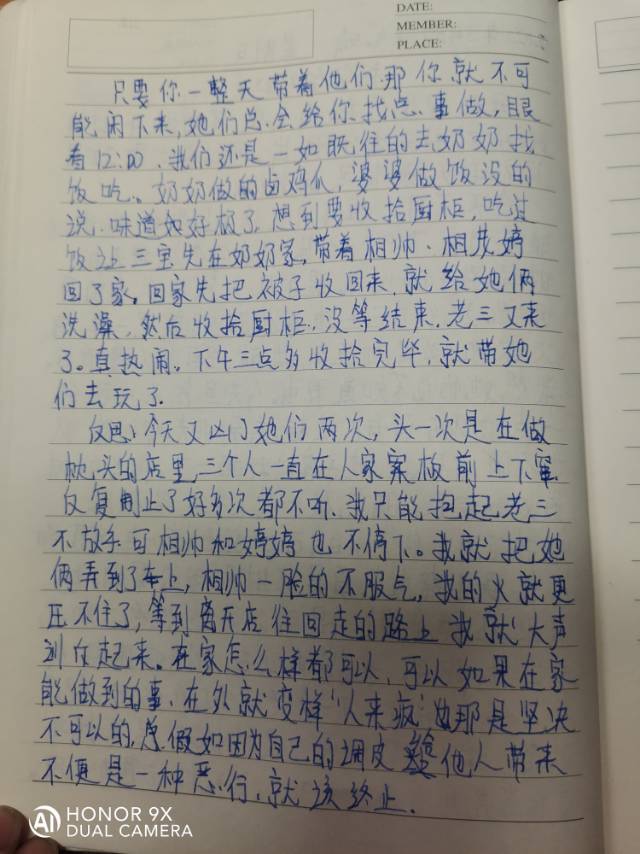 DATE:
MEMBER:
PLACE:
只要你一整天带着他们那你就不可
能闲下来,她们总会给你找点事做,眼
看12:00、我们还是一如既往的去奶奶找
饭吃。奶奶做的卤鸡爪,婆婆做饭没的
说,味道如好极了,想到要收拾厨柜,吃过
饭让三宝先在奶奶家,带着相帅、相茂婷
回了家。回家先把被子收回来,就给她俩
洗澡,然后收拾厨柜,没等结束,老三又来
了。真热闹。下午三点多收拾完毕,就带她
们去玩了.
反思:今天又凶了她们两次,头一次是在做
枕头的店里,三个人一直在人家案板前上下窜
反复制止了好多次都不听、我只能抱起老三
不放手可相帅和婷婷也不停下。我就把她
俩弄到了车上,相帅一脸的不服气,我的火就更
压不住了,等到离开店往回走的路上我就大声
训斥起来。在家怎么样都可以,可以如果在家
能做到的事、在外就变样"人来疯"那是坚决
不可以的,假如因为自己的调皮给他人带来
不便是一种恶行、就该终止.
AI HONOR 9X
DUAL CAMERA